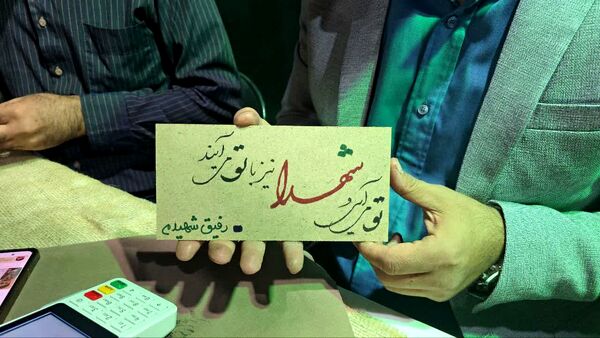 تو می‌آیی و شهدا نیز با تو می‌آیند
رفیق شهیدم